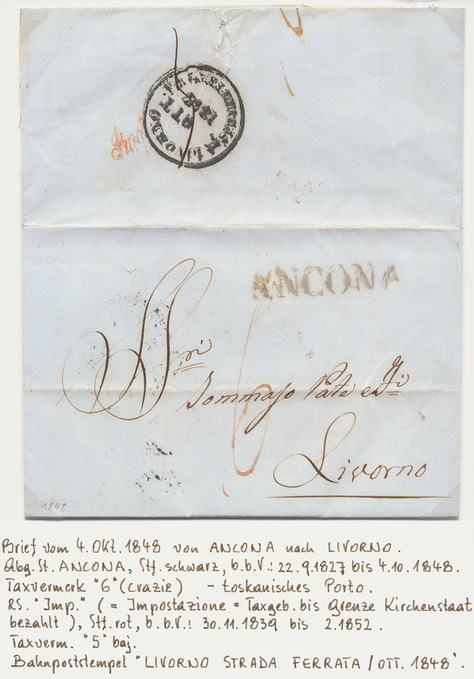 LIVORNO STRADA FERRATA
OTT.
1848
Imp
ANCONA
Sri
Tommaso Pate e fi
Livorno
6
1848
Brief vom 4. Okt. 1848 von ANCONA nach LIVORNO.
Abg. St. ANCONA, Stf. schwarz, b.b.V.: 22.9.1827 bis 4.10.1848.
Taxvermerk "6" (crazie) - toskanisches Porto.
RS. "Imp." (= Impostazione = Taxgeb. bis Grenze Kirchenstaat
bezahlt), Stf. rot, b.b.V.: 30.11.1839 bis 2.1852.
Taxverm. "5" baj.
Bahnpoststempel "LIVORNO STRADA FERRATA / OTT. 1848".